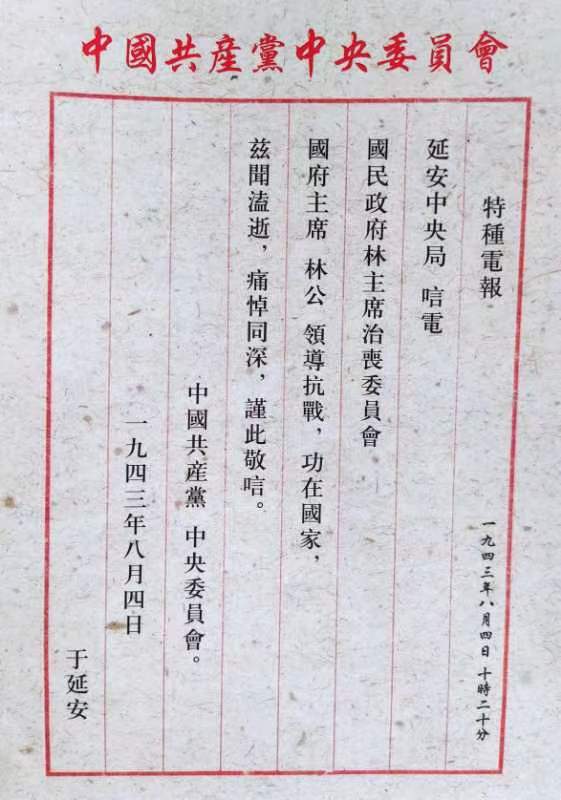 中國共産黨中央委員會
特種電報
一九四三年八月四日 十時二十分
延安中央局 唁電
國民政府林主席治喪委員會
國府主席 林公 領導抗戰，功在國家，
兹聞溘逝，痛悼同深，謹此敬唁。
中國共産黨 中央委員會。
一九四三年八月四日
于延安